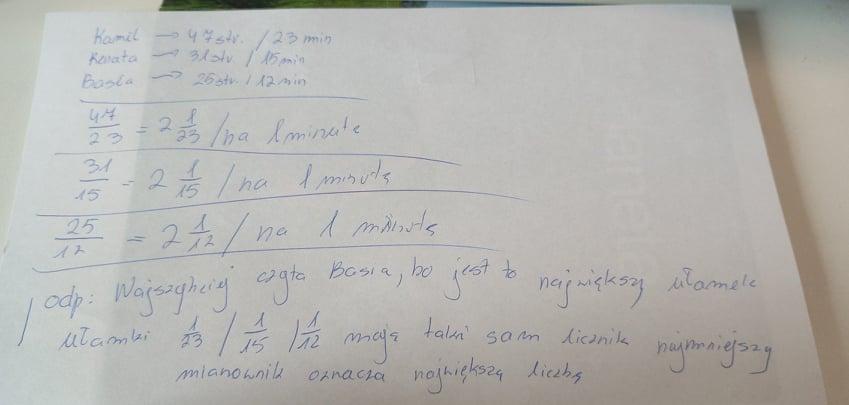 Kamil → 47 str. / 23 min
Renata → 31 str. / 15 min
Basia → 25 str. / 12 min
47/23 = 2 1/23 / na 1 minutę
31/15 = 2 1/15 / na 1 minutę
25/12 = 2 1/12 / na 1 minutę
odp: Najszybciej czyta Basia, bo jest to największy ułamek
ułamki 1/23 / 1/15 / 1/12 mają taki sam licznik najmniejszy
mianownik oznacza największą liczbę